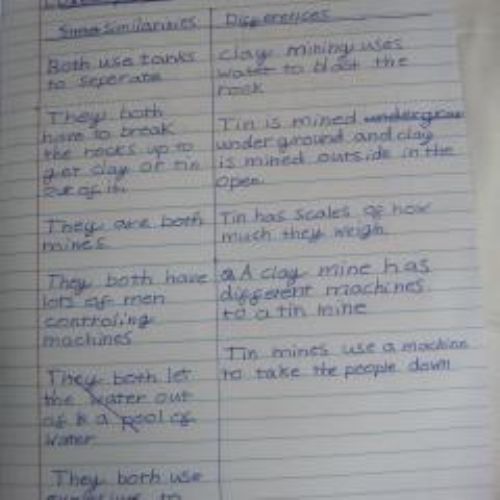 Similarities
Differences
Both use tanks
to seperate
They both
have to break
the rocks up to
get clay or tin
out of it.
They are both
mines
They both have
lots of men
controling
machines
They both let
the water out
of a pool of
water
They both use
to
Clay mining uses
water to blast the
rock
Tin is mined undergrou
underground and clay
is mined outside in the
open
Tin has scales of how
much they weigh
A clay mine has
different machines
to a tin mine
Tin mines use a machine
to take the people down